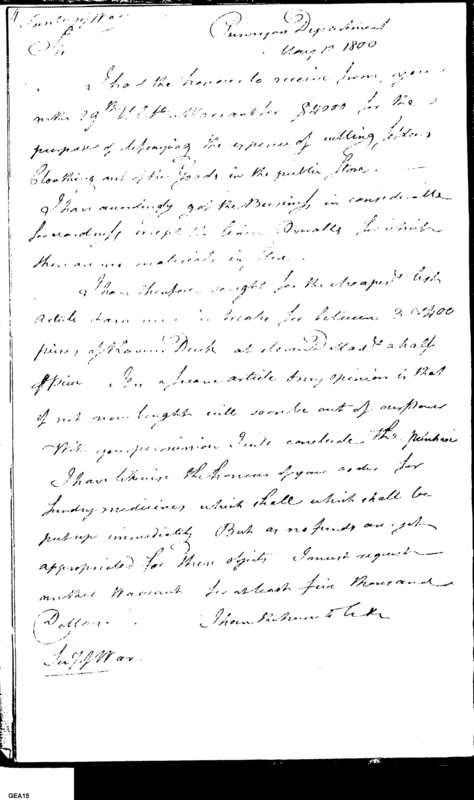 Purveyors Department
Sir May 1800
I had the honour to receive from you
on the 29th Ult a Warrant for $4000 for the
purpose of defraying the expense of cutting
Cloathing out of the goods in the public Store.
I have accordingly got the Business in considerable
forwardness except the Overalls for which
there are no materials in Store.
I have therefore sought for the cheapest & best
article & am now in treaty for between 3 & 400
pieces of Ravens Duck at eleven Dollars & a half
piece article & my opinion is that
if not now bought will soon be out of our power
With your permission I will conclude this
I have likewise the honour of your order for
Sundry medicines which shall which shall be
put up immediately But as no funds are yet
appropriated for these objects I must request
another Warrant for at least five thousand
Dollars I have the honor to be &c
Secy of War.
GEA15